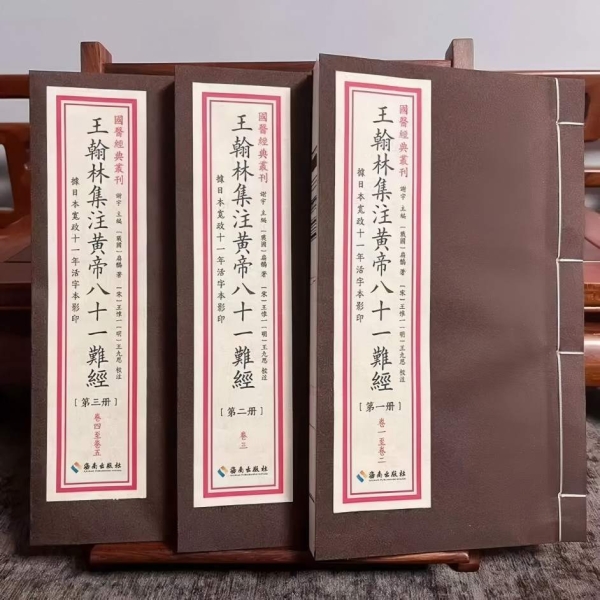 國醫經典叢刊
謝宇 主編 [戰國]扁鵲 著 [宋]王惟一 [明]王九思 校注
王翰林集注黃帝八十一難經
據日本寬政十一年活字本影印
[第一册]
卷一至卷二
海南出版社
國醫經典叢刊
謝宇 主編 [戰國]扁鵲 著 [宋]王惟一 [明]王九思 校注
王翰林集注黃帝八十一難經
據日本寬政十一年活字本影印
[第二册]
卷三
海南出版社
國醫經典叢刊
謝宇 主編 [戰國]扁鵲 著 [宋]王惟一 [明]王九思 校注
王翰林集注黃帝八十一難經
據日本寬政十一年活字本影印
[第三册]
卷四至卷五
海南出版社